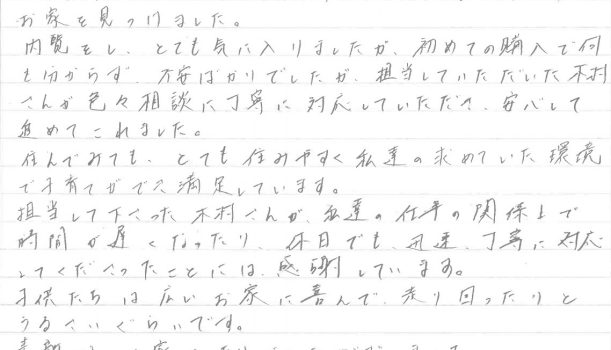 お家を見つけました。
内覧をし、とても気に入りましたが、初めての購入で何
も分からず、不安ばかりでしたが、担当していただいた木村
さんが色々相談に丁寧に対応していただき、安心して
進めてこれました。
住んでみても、とても住みやすく私達の求めていた環境
で子育てができ満足しています。
担当して下さった木村さんが、私達の仕事の関係上で
時間が遅くなったり、休日でも、迅速、丁寧に対応
してくださったことには、感謝しています。
子供たちは広いお家に喜んで、走り回ったりと
うるさいぐらいです。